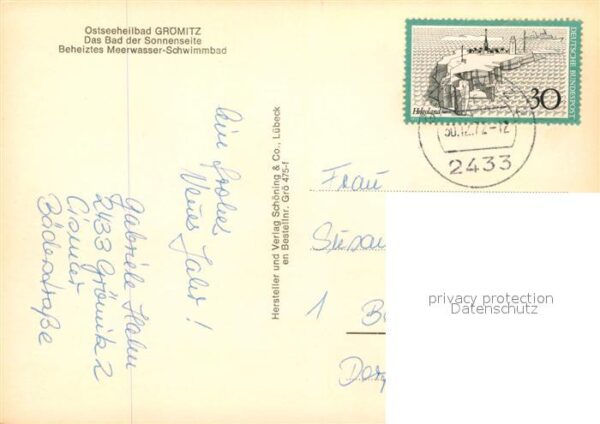 Ostseeheilbad GRÖMITZ
Das Bad der Sonnenseite
Beheiztes Meerwasser-Schwimmbad
Ein frohes
Neues Jahr!
Gabriele Hahn
2433 Grömitz 2
Cismar
Bäderstraße
Hersteller und Verlag Schöning & Co., Lübeck
en Bestellnr. Grö 475-f
DEUTSCHE BUNDESPOST
Helgoland
30
30.12.72-12
2433
Frau
Susan
1 B
privacy protection
Datenschutz